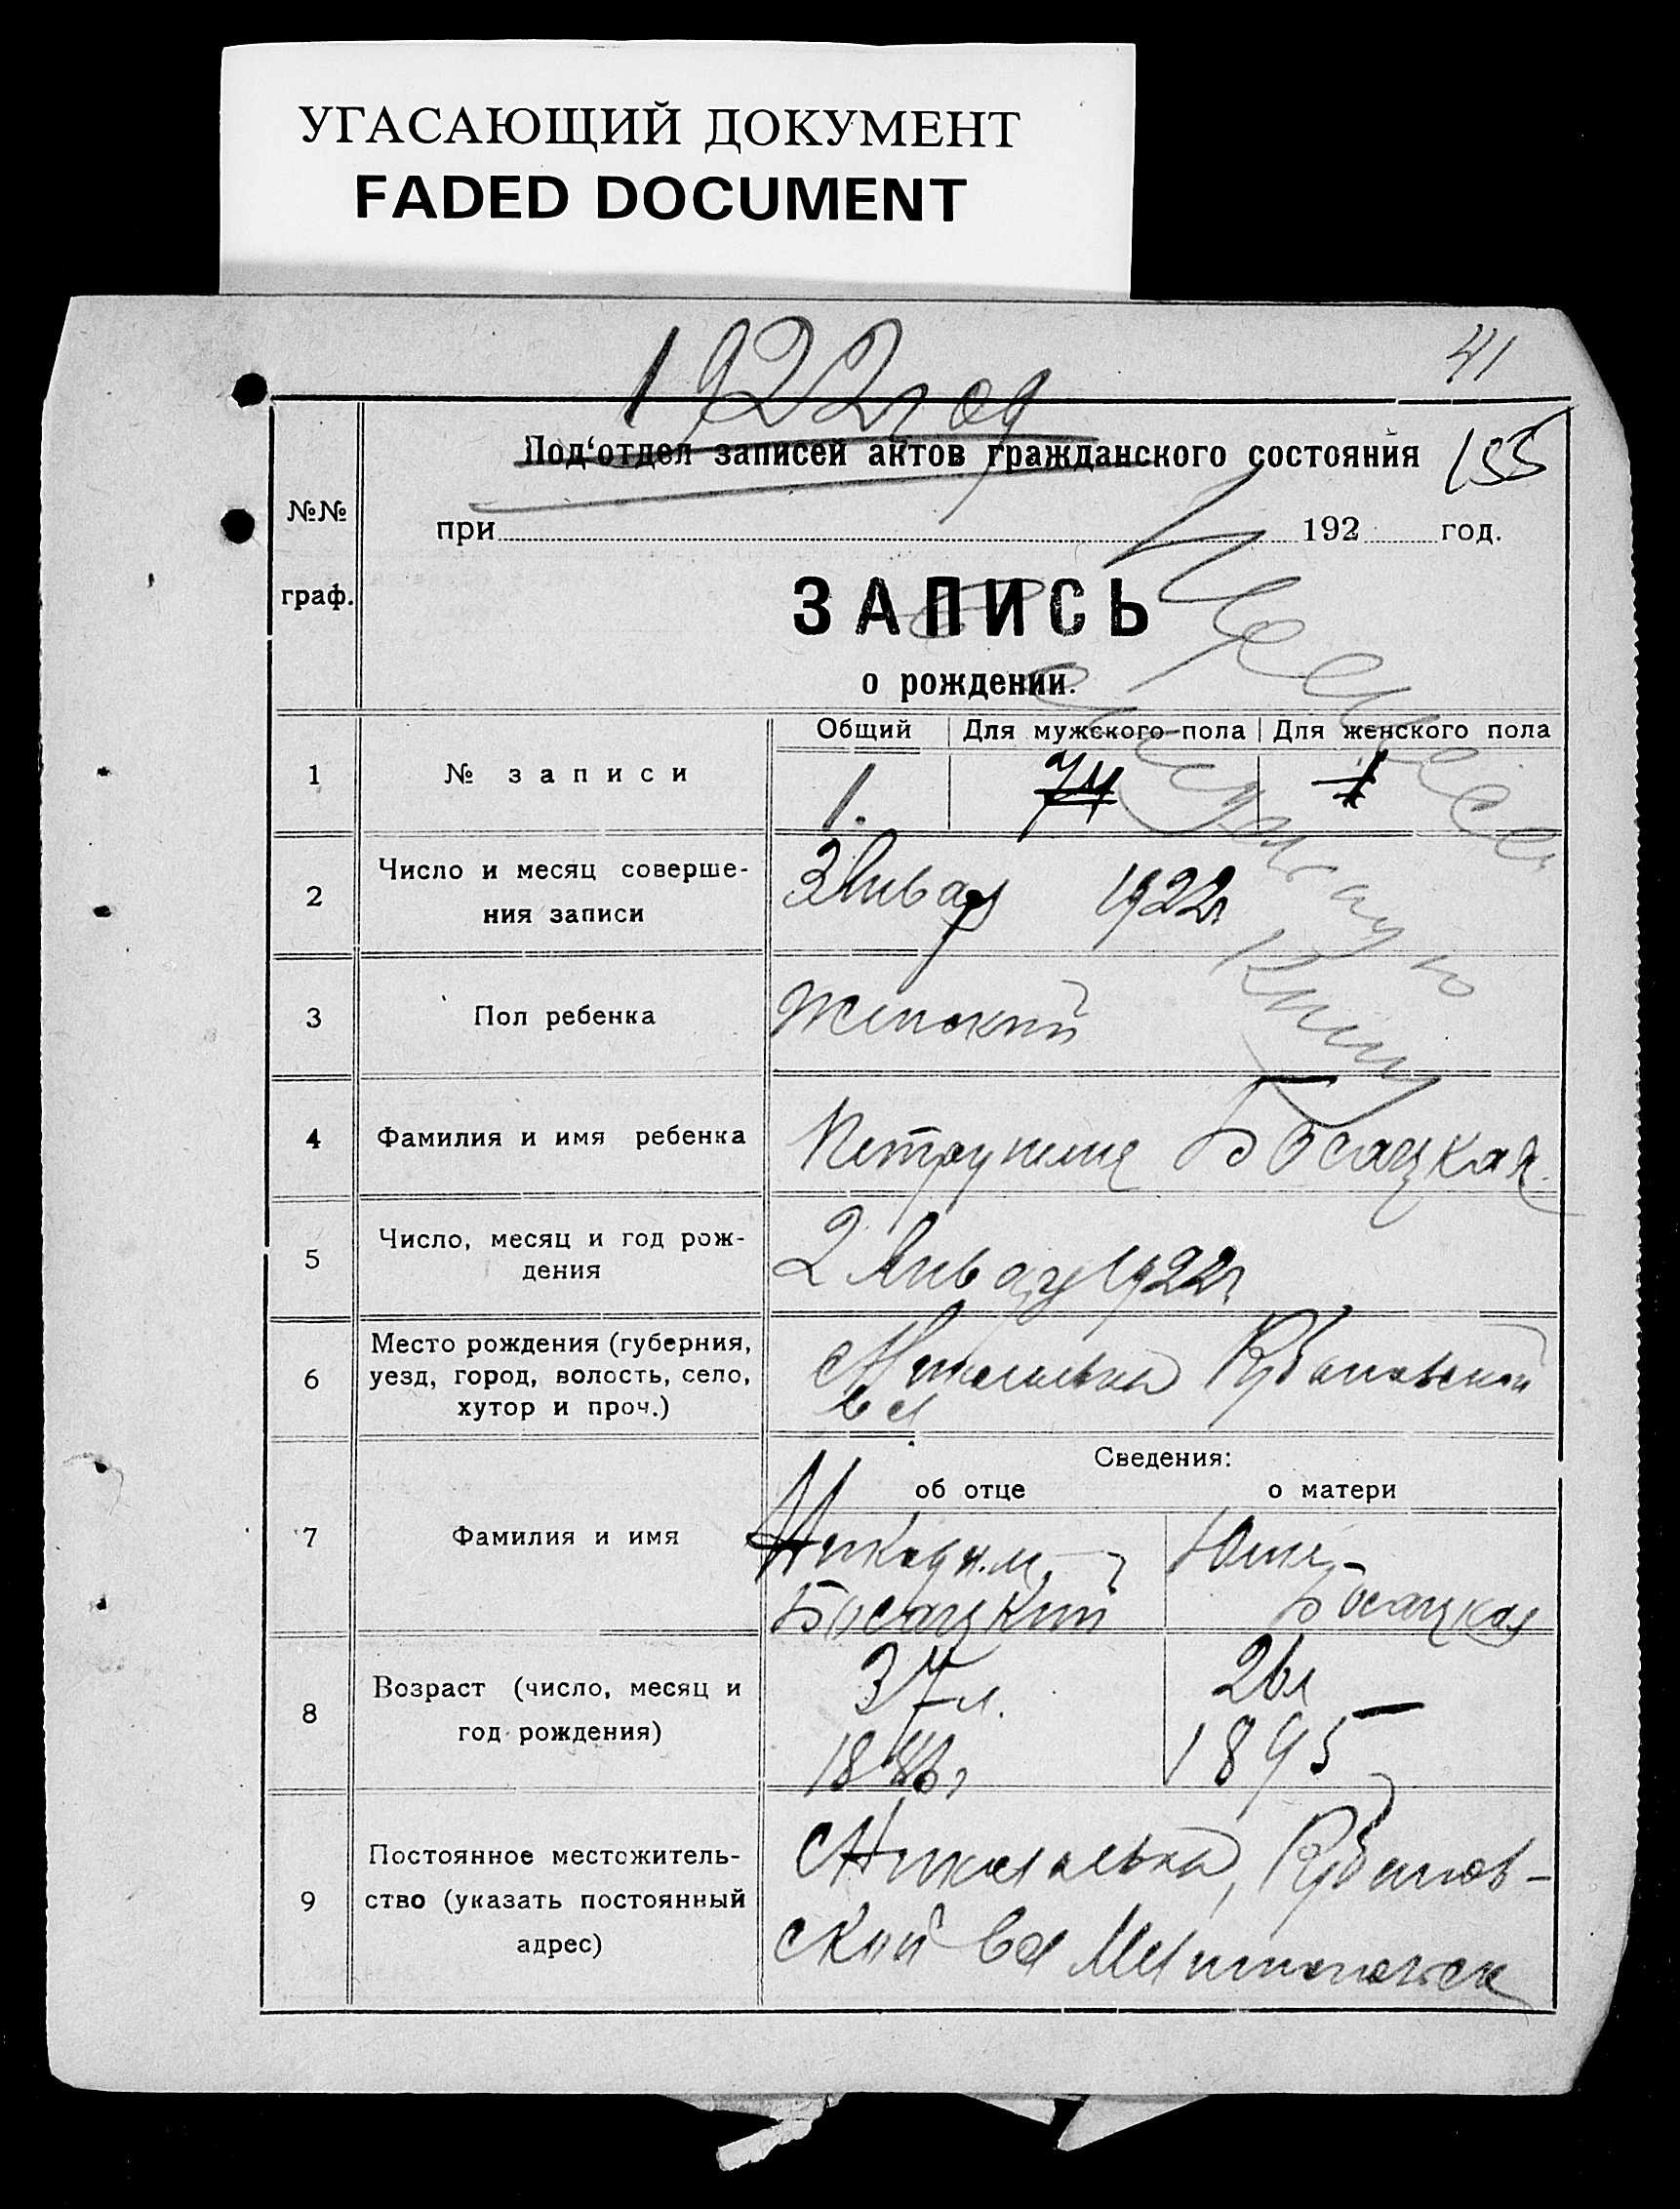 УГАСАЮЩИЙ ДОКУМЕНТ
FADED DOCUMENT
1922 год
41
Под‘отдел записей актов гражданского состояния
155
№№
граф.
при 192 год.
ЗАПИСЬ
о рождении.
Общий Для мужского пола Для женского пола
1 № записи 1.
2 Число и месяц соверше-
ния записи
3 Январ 1922г
3 Пол ребенка Женский
4 Фамилия и имя ребенка Петрунеля Босацкая
5 Число, месяц и год рож-
дения
2 Январ 1922г
6 Место рождения (губерния,
уезд, город, волость, село,
хутор и проч.)
Вл
Сведения:
об отце о матери
7 Фамилия и имя
Никодим Юлия
Босацкий Босацкая
8 Возраст (число, месяц и
год рождения)
37 л. 26 л
1895
9 Постоянное местожитель-
ство (указать постоянный
адрес)
ской Вл
книгу